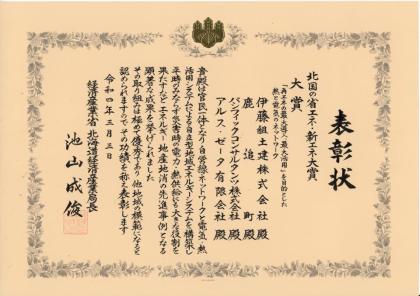 表彰状
北国の省エネ・新エネ大賞
大賞
「再エネの最大導入・最大活用」を目的とした
熱と電気のネットワーク
伊藤組土建株式会社殿
鹿追町殿
パシフィックコンサルタンツ株式会社殿
アルファ・ゼータ有限会社殿
貴殿は官民一体となり自営線ネットワークと電気・熱
活用システムによる自立型地域エネルギーシステムを構築し
平時のみならず災害時の電力・熱供給にも大きな役割を
果たすなどエネルギー地産地消の先進事例となる
顕著な成果を挙げられました
その取り組みは極めて優秀であり他地域の模範になると
認められますので、その功績を称え表彰します
令和四年三月三日
経済産業省 北海道経済産業局長
池山成俊